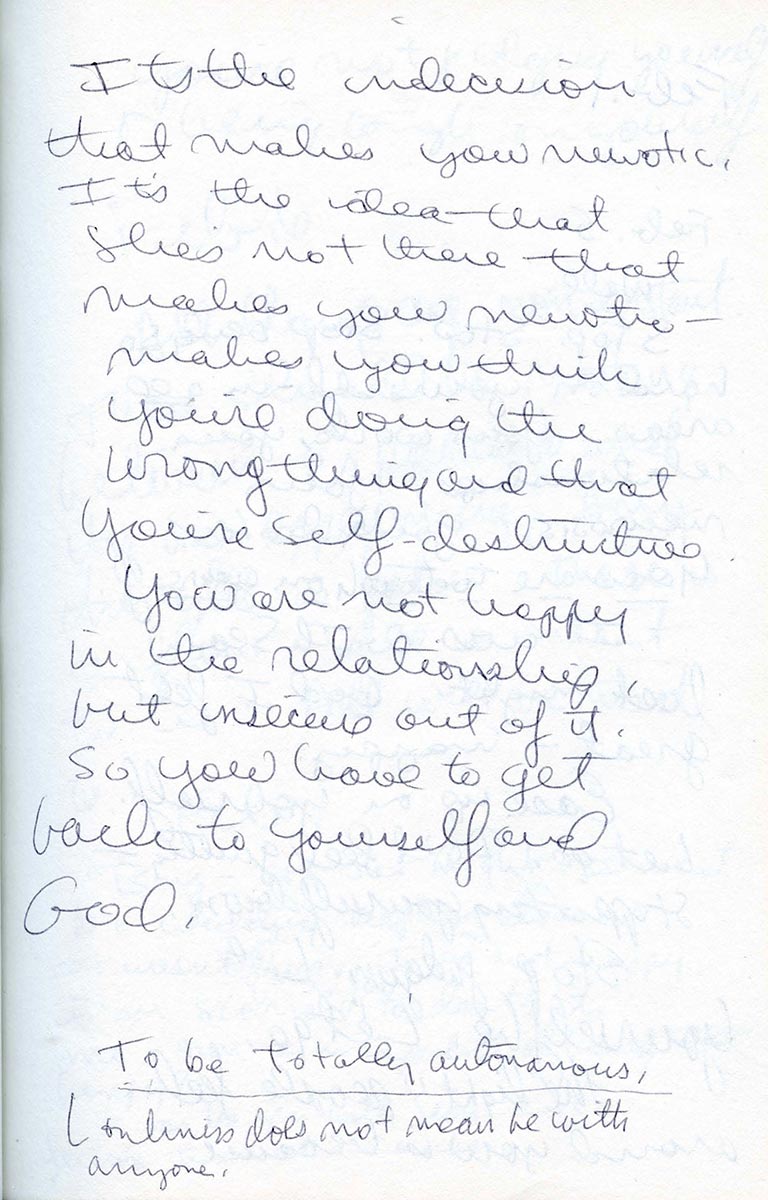 It's the indecision
that makes you neurotic.
It's the idea that
she's not there that
makes you neurotic—
makes you think
you're doing the
wrong thing and that
you're self-destructive.
You are not happy
in the relationship,
but insecure out of it.
So you have to get
back to yourself and
God.
To be totally autonomous,
Lonliness does not mean be with
anyone.